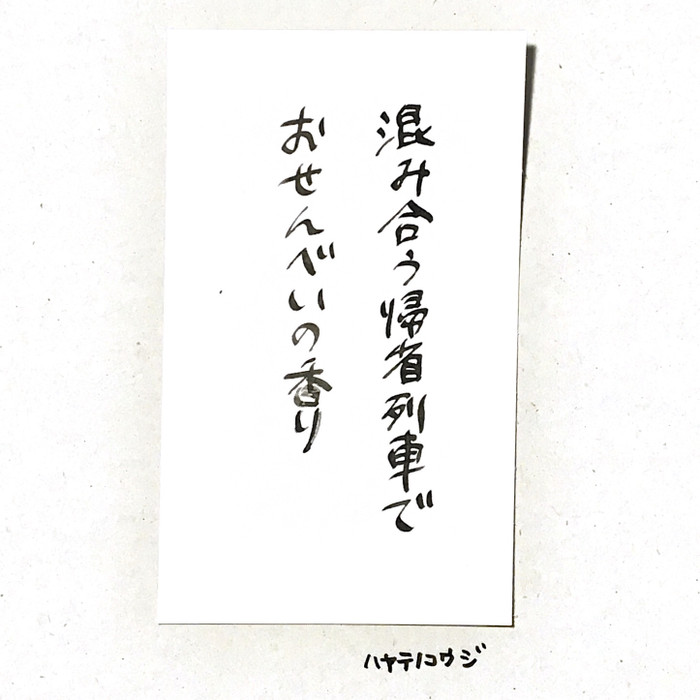 混み合う帰省列車で
おせんべいの香り
ハヤテノコウジ